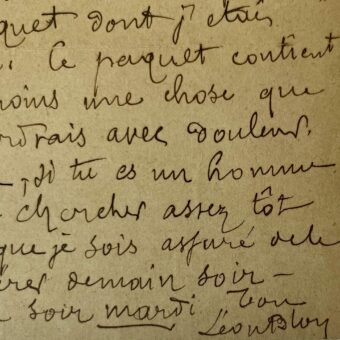 quet dont j'étais
. Ce paquet contient
moins une chose que
rdrais avec douleur.
– si tu es un homme
chercher assez tôt
que je sois assuré de le
demain soir –
soir mardi Ton
Léon Bloy